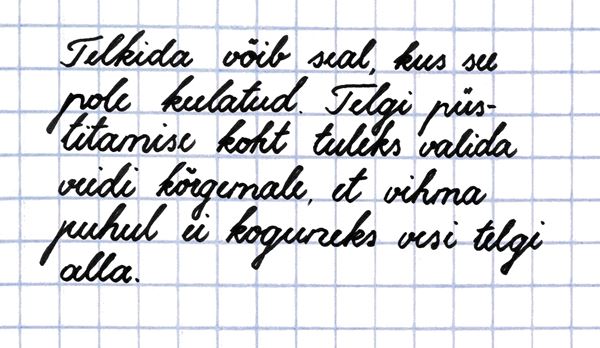 Telkida võib seal, kus see
pole keelatud. Telgi püs-
titamise koht tuleks valida
veidi kõrgemale, et vihma
puhul ei koguneks vesi telgi
alla.